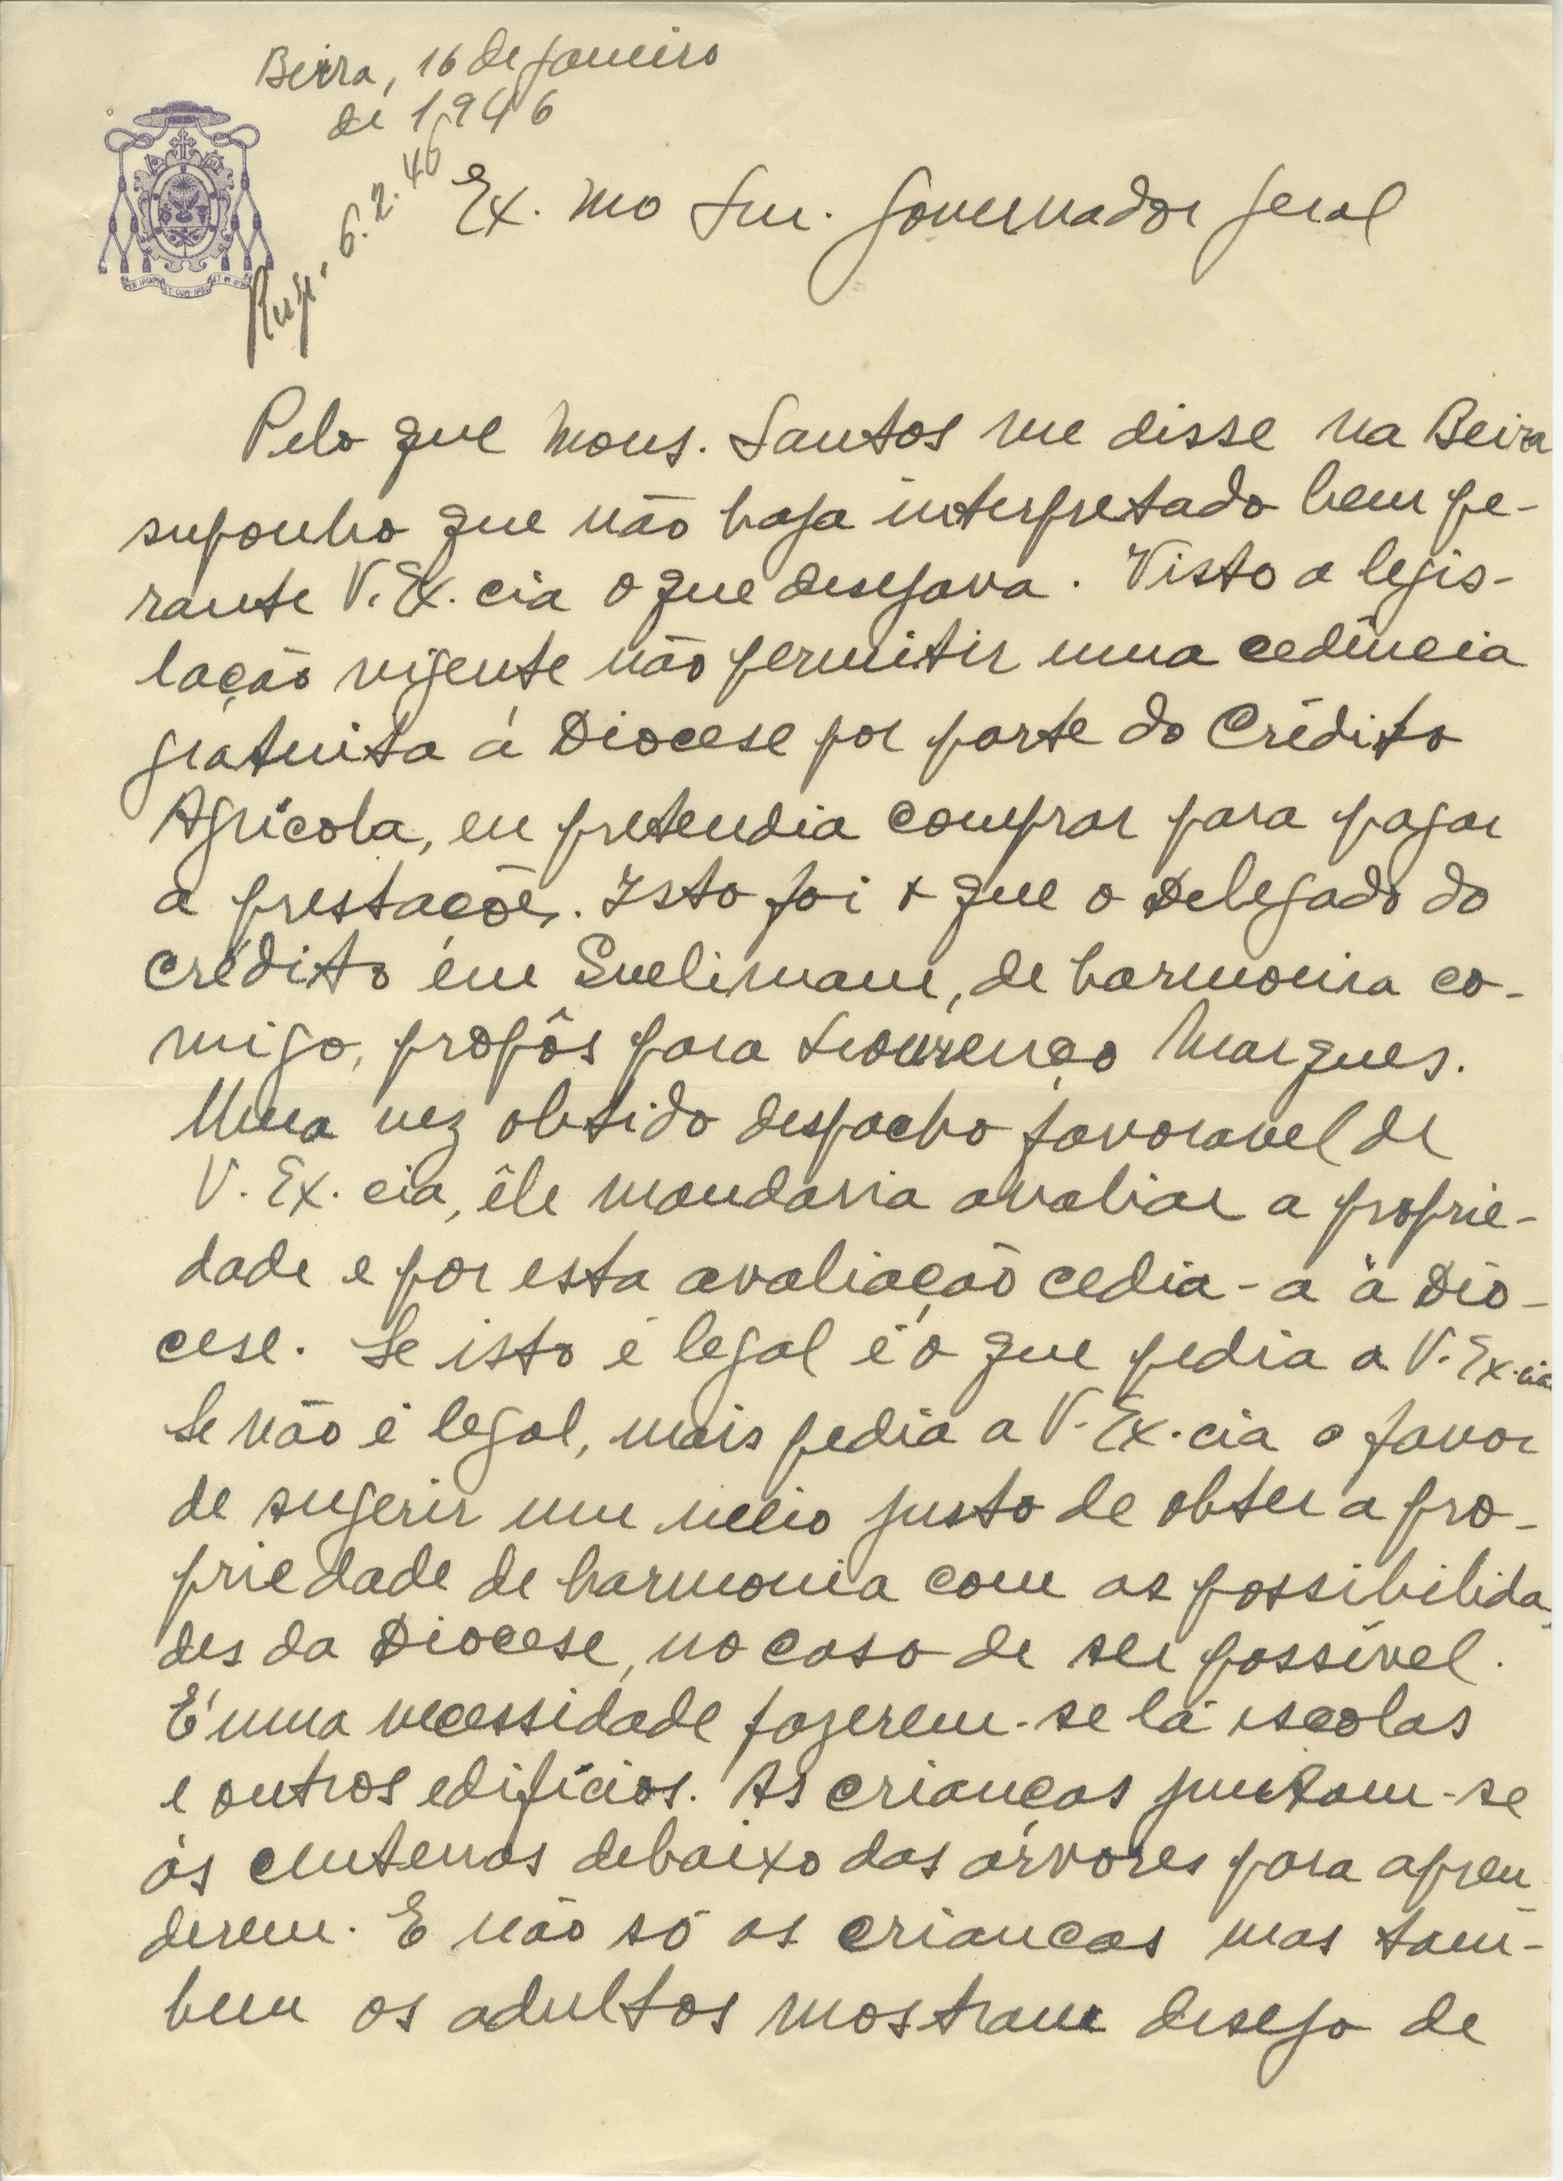 Beira, 16 de Janeiro
de 1946
Resp. 6.2.46
Ex.mo Snr. Governador Geral
Pelo que Mons. Santos me disse na Beira
suponho que não haja interpretado bem pe-
rante V. Ex.cia o que desejava. Visto a legis-
lação vigente não permitir uma cedência
gratuita á Diocese por parte do Crédito
Agrícola, eu pretendia comprar para pagar
a prestações. Isto foi o que o Delegado do
crédito em Quelimane, de harmonia co-
migo, propôs para Lourenço Marques.
Uma vez obtido despacho favoravel de
V. Ex.cia, êle mandaria avaliar a proprie-
dade e por esta avaliação cedia-a à Dio-
cese. Se isto é legal é o que pedia a V. Ex.cia
Se não é legal, mais pedia a V. Ex.cia o favor
de sugerir um meio justo de obter a pro-
priedade de harmonia com as possibilida-
des da Diocese, no caso de ser possível.
É uma necessidade fazerem-se lá escolas
e outros edifícios. As crianças juntam-se
ás centenas debaixo das árvores para apren
derem. E não só as crianças mas tam-
bem os adultos mostram desejo de